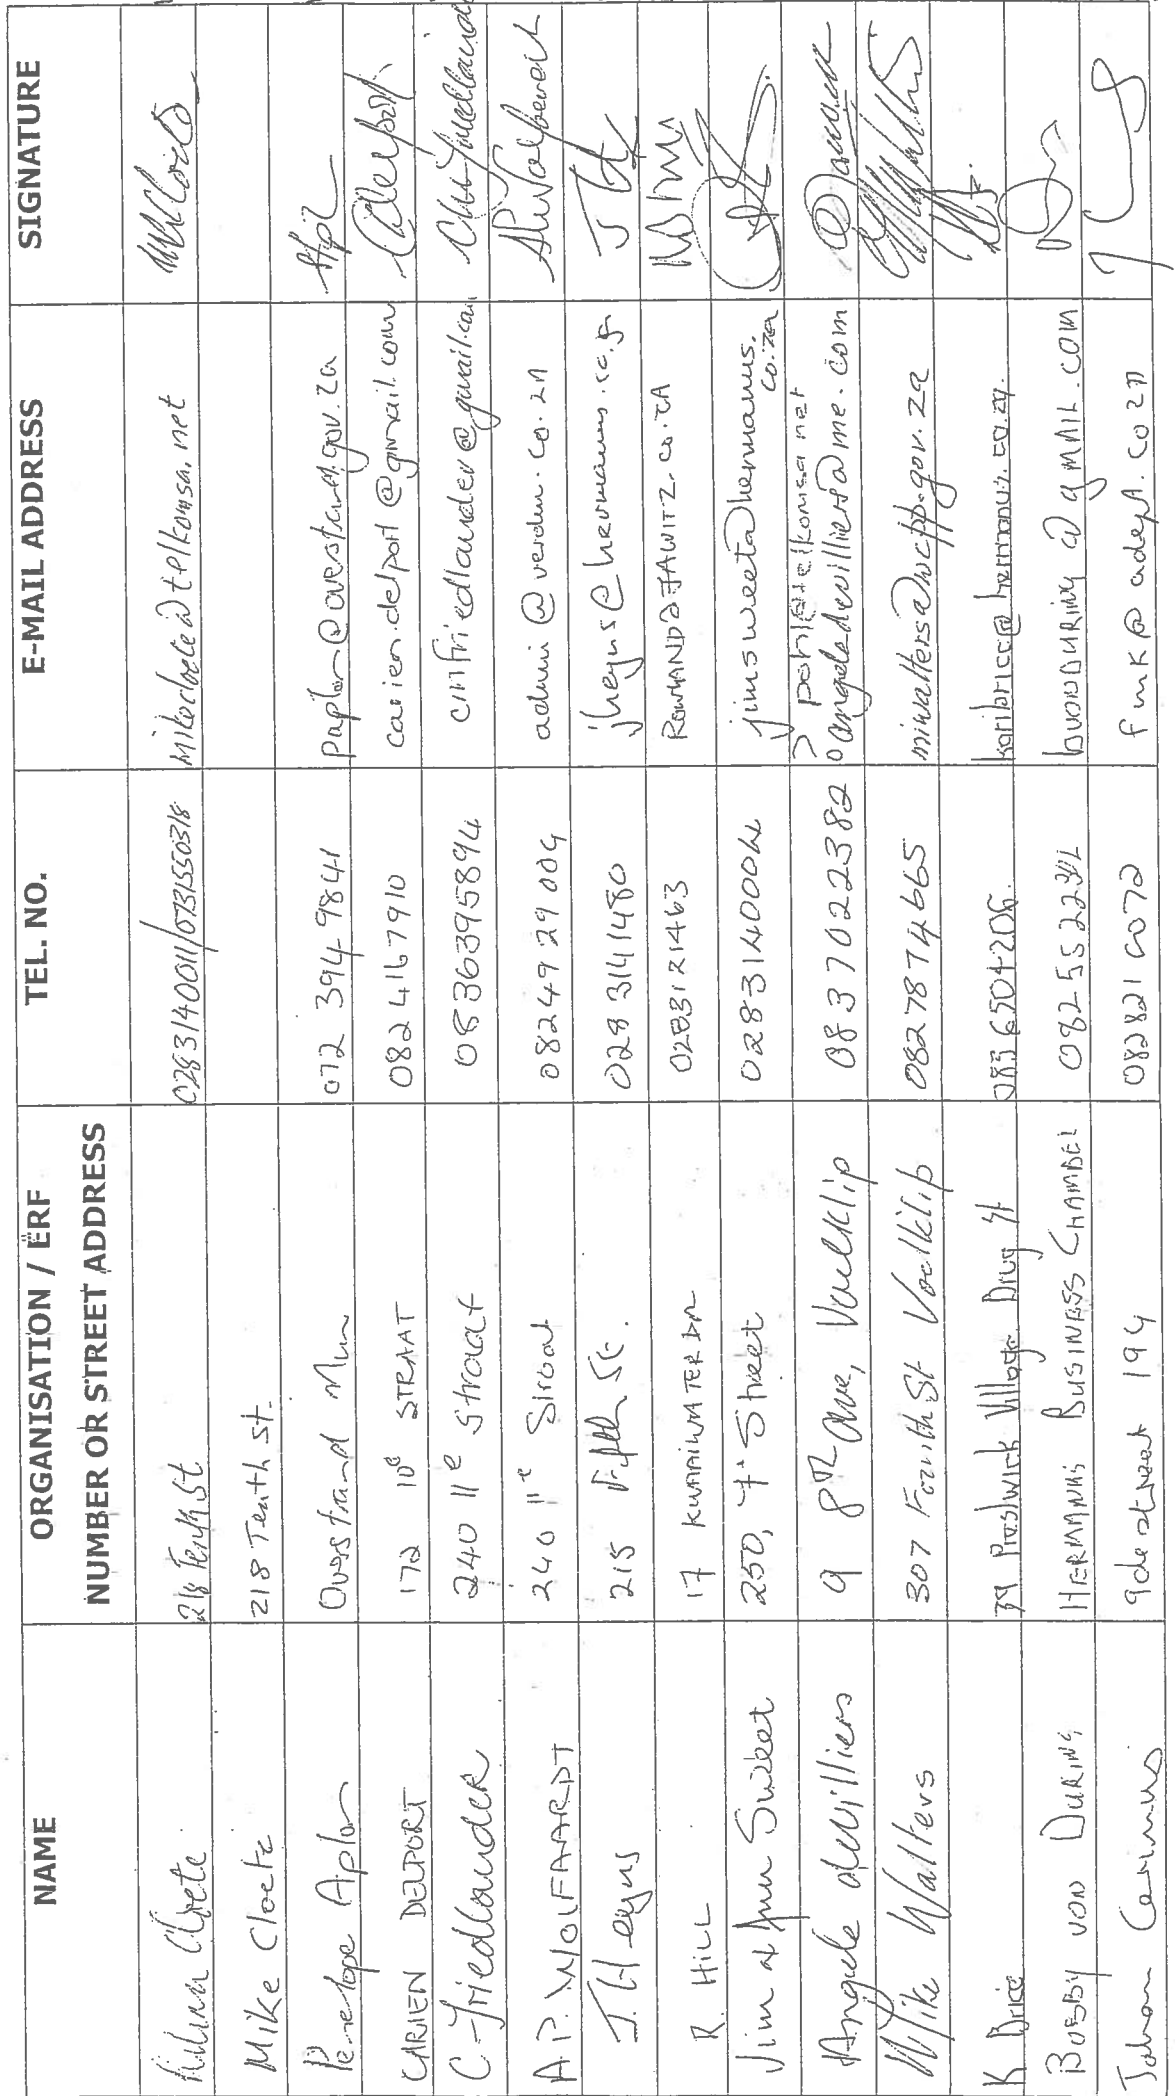 NAME
ORGANISATION / ERF NUMBER OR STREET ADDRESS
TEL. NO.
E-MAIL ADDRESS
SIGNATURE
Cloete 218 Tenth St 0283140011/0731550318 mikecloete@telkomsa.net
Mike Cloete 218 Tenth St.
Penelope Aplon Overstrand Mun 072 394 9841 paplon@overstrand.gov.za
CARIEN DELPORT 172 10e STRAAT 082 416 7910 carien.delport@gmail.com
C Friedlander 240 11e Straat 0836395894 cmfriedlander@gmail.com
A.P. WOLFAARDT 240 11e Straat 082 49 29 009 admin@verdun.co.za
J. Heyns 215 Fifth St. 028 3141480 jheyns@hermanus.co.za
R. HILL 17 KWAAIWATER DR 0283121463 ROWHAND@JAWITZ.CO.ZA
Jim & Ann Sweet 250, 7th Street 0283140004 jimsweet@hermanus.co.za
Angela deVilliers 9 8th Ave, Voelklip 0837022382 pohl@telkomsa.net
angeladevilliers@me.com
Mike Walters 307 Fourth St Voelklip 0827874665 miwalters@wcpp.gov.za
K Brice 39 Prestwick Village 083 6504206. karibrice@hermanus.co.za.
BOBBY VON DURING HERMANUS BUSINESS CHAMBER BVONDURING@GMAIL.COM
Johan Cerimus 9de straat 194 fmk@adept.co.za